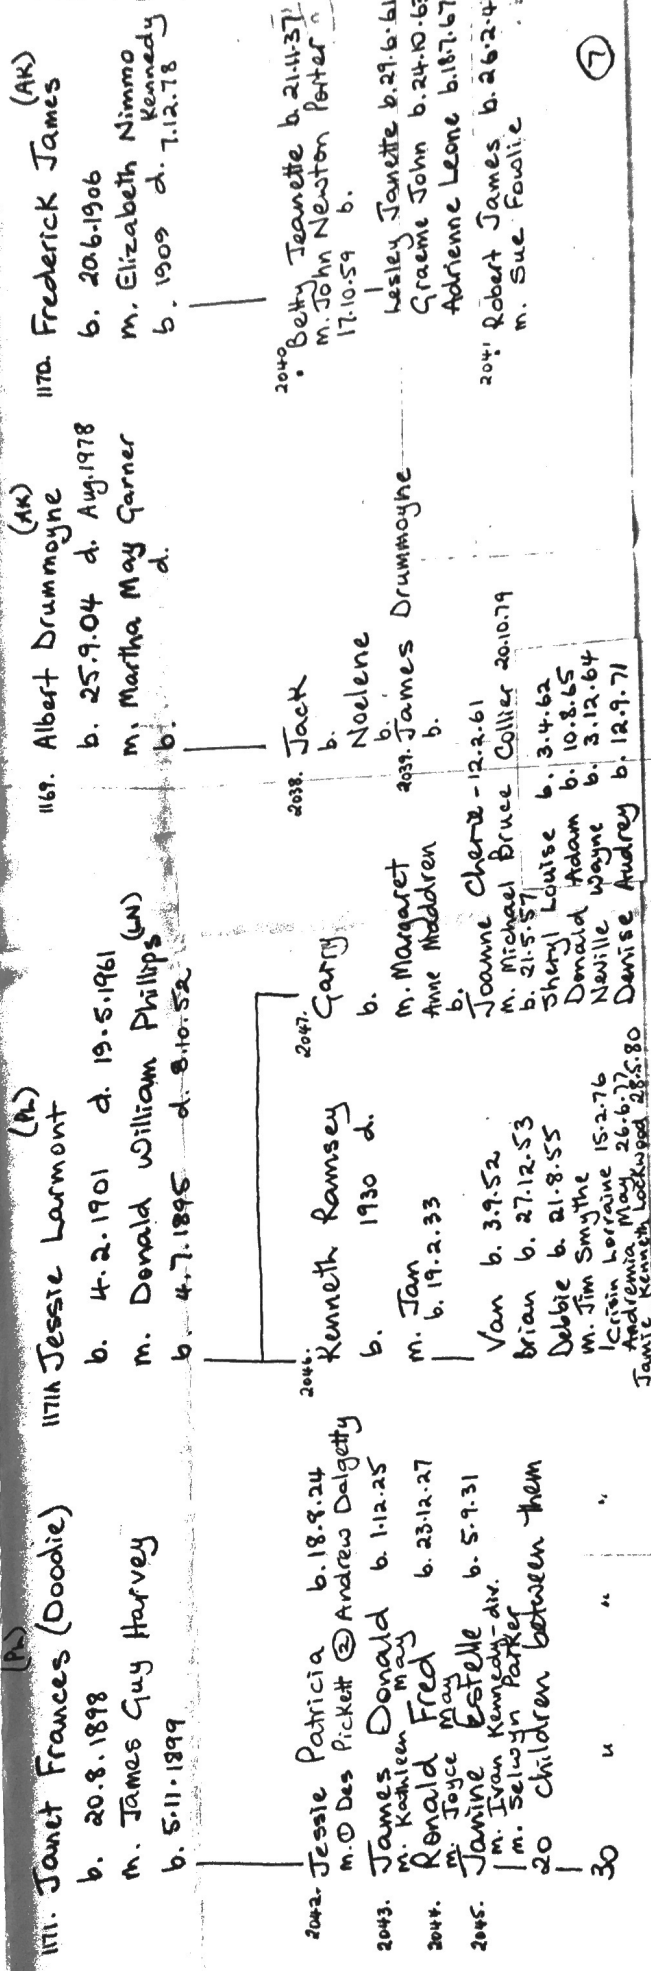 (PL)
1171. Janet Frances (Doodie)
b. 20.8.1898
m. James Guy Harvey
b. 5.11.1899
2042. Jessie Patricia b. 18.9.24
m. ① Des Pickett ② Andrew Dalgetty
2043. James Donald b. 1.12.25
m. Kathleen May
2044. Ronald Fred b. 23.12.27
m. Joyce May
2045. Janine Estelle b. 5.9.31
m. Ivan Kennedy - div.
m. Selwyn Parker
20 children between them
30 " " "
(PL)
1171A Jessie Larmont
b. 4.2.1901 d. 19.5.1961
m. Donald William Phillips (LN)
b. 4.7.1895 d. 8.10.52
2046. Kenneth Ramsey
b. 1930 d.
m. Jan
b. 19.2.33
Van b. 3.9.52
Brian b. 27.12.53
Debbie b. 21.8.55
m. Jim Smythe
Kristin Lorraine 15.2.76
Andremia May 26.6.77
Jamie Kenneth Lockwood 28.5.80
2047. Garry
b.
m. Margaret
Anne Maddren
b.
Joanne Cherie - 12.2.61
m. Michael Bruce Collier 20.10.79
b. 21.5.57
Sheryl Louise b. 3.4.62
Donald Adam b. 10.8.65
Neville Wayne b. 3.12.64
Denise Audrey b. 12.9.71
(AK)
1169. Albert Drummoyne
b. 25.9.04 d. Aug. 1978
m. Martha May Garner
b. d.
2038. Jack
b.
Noelene
b.
2039. James Drummoyne
b.
(AK)
1170. Frederick James
b. 20.6.1906
m. Elizabeth Nimmo
Kennedy
b. 1909 d. 7.12.78
2040. Betty Jeanette b. 21.11.37
m. John Newton Porter
17.10.59 b.
Lesley Janette b. 29.6.61
Graeme John b. 24.10.6
Adrienne Leone b. 18.7.67
2041 Robert James b. 26.2.4
m. Sue Fowlie
7